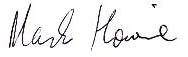 Mark Howie